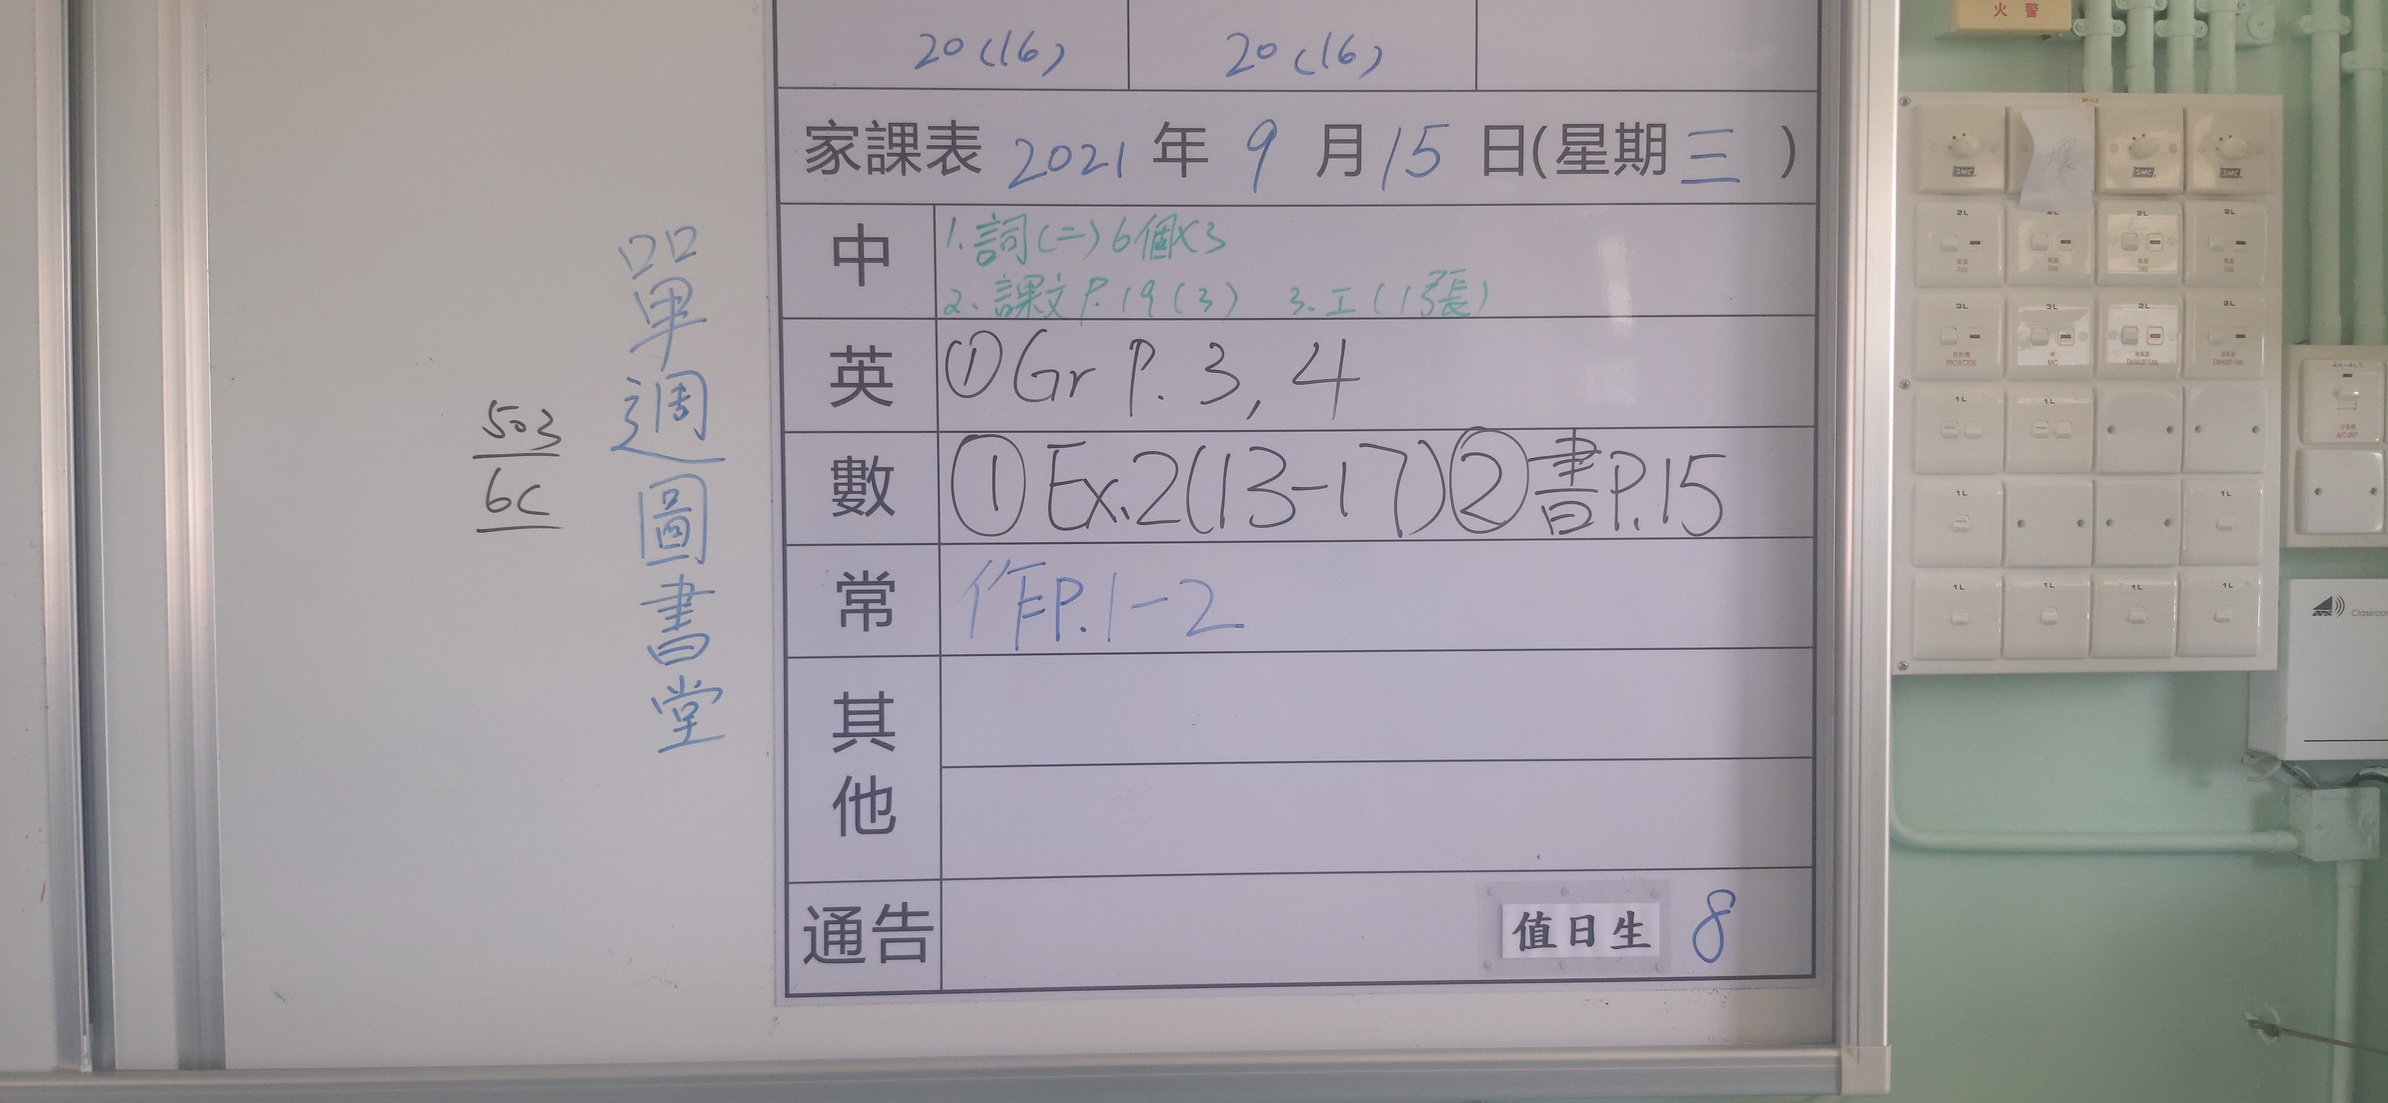 20(16) 20(16)
家課表 2021 年 9 月 15 日(星期 三 )
中
1. 詞(二) 6個×3
2. 課文 P. 19 (3) 3. 工 (1張)
英 ① Gr P. 3, 4
數 ① Ex.2(13-17) ② 書P.15
常 作P.1-2
其他
通告
值日生 8
單週圖書堂
503
6C
火 警
SMC SMC SMC
2L 2L 2L 2L
FAN FAN FAN FAN
3L 3L 2L 2L
PROJECTOR MIC EXHAUST FAN EXHAUST FAN
1L 1L
1L 1L
1L 1L 1L 1L